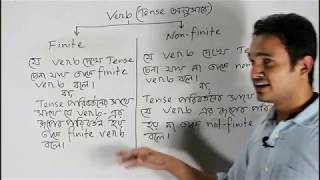 Verb (Tense অনুসারে)
Finite
যে verb দেখে Tense
চেনা যায় তাকে finite
verb বলে।
বা,
Tense পরিবর্তনের সাথে
সাথে যে verb-এর
রূপের পরিবর্তন হয়
তাকে finite verb
বলে।
Non-finite
যে verb দেখে Tense
চেনা যায় না তাকে non
verb বলে।
বা,
Tense পরিবর্তনের সাথে
যে verb এর রূপের পরি
হয় না তাকে not-finite
বলে।